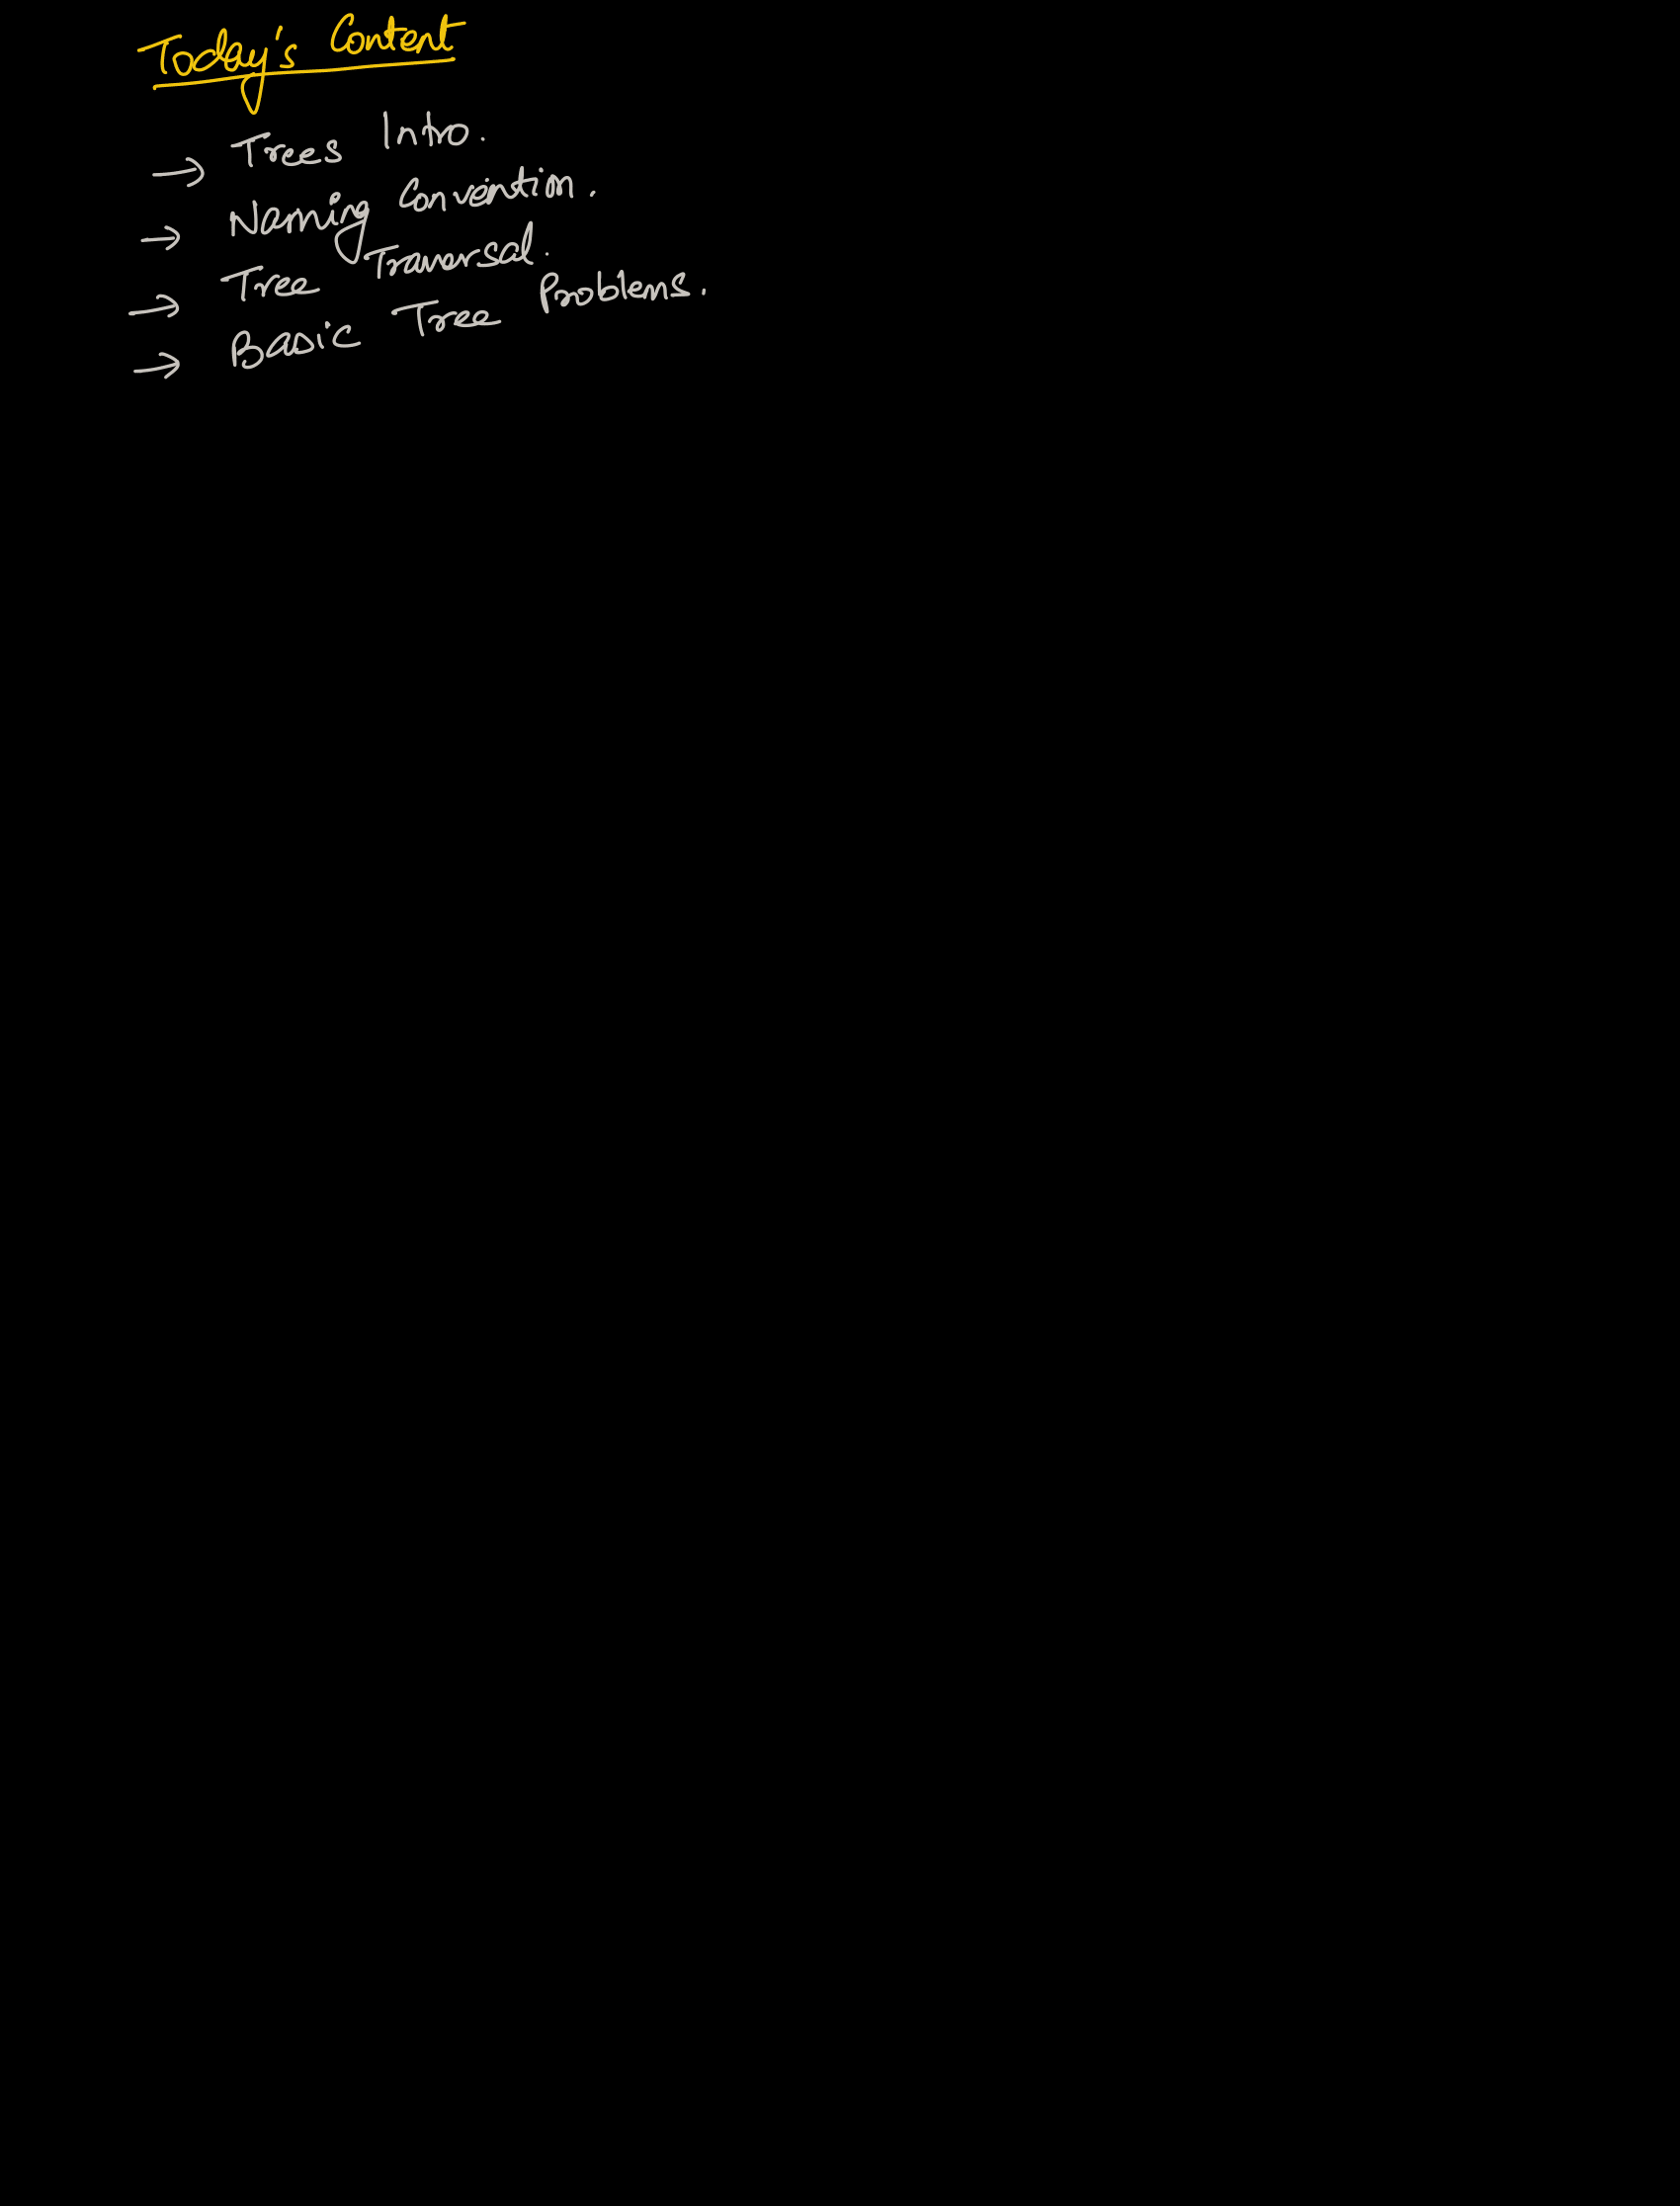 Today's Content
→ Trees Intro.
→ Naming Convention.
→ Tree Traversal.
→ Basic Tree Problems.